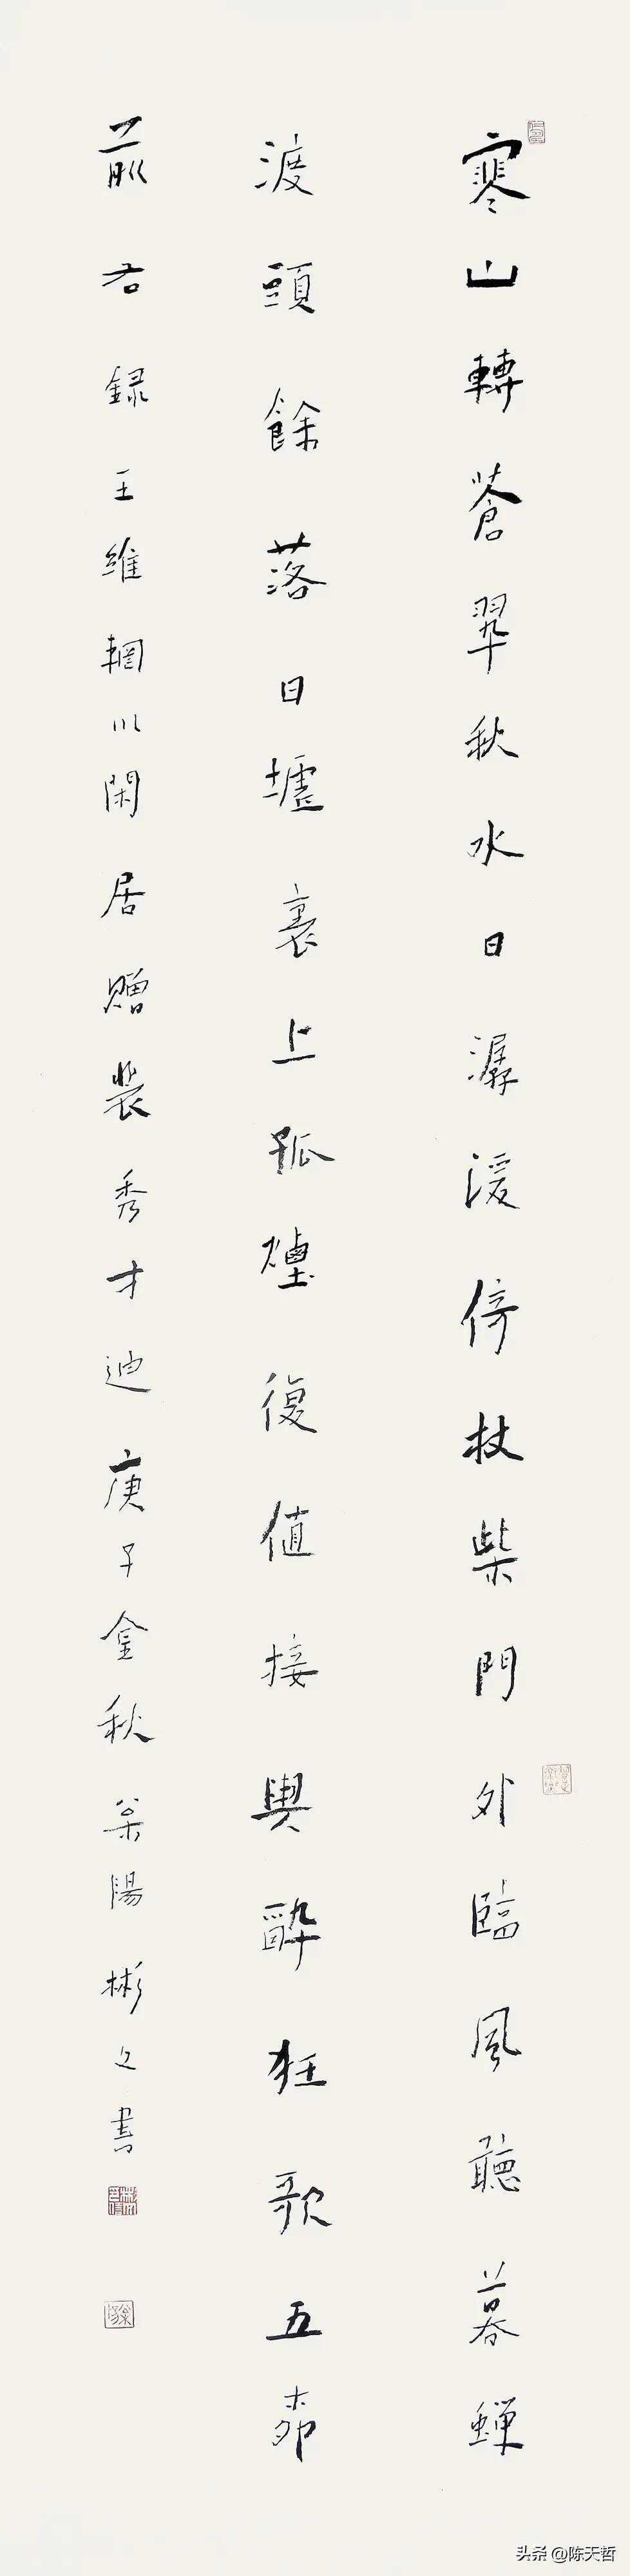 寒山轉蒼翠秋水日潺湲倚杖柴門外臨風聽暮蟬
渡頭餘落日墟裏上孤煙復值接輿醉狂歌五柳
前右錄王維輞川閑居贈裴秀才迪庚子金秋滎陽彬之書
头条 @陈天哲